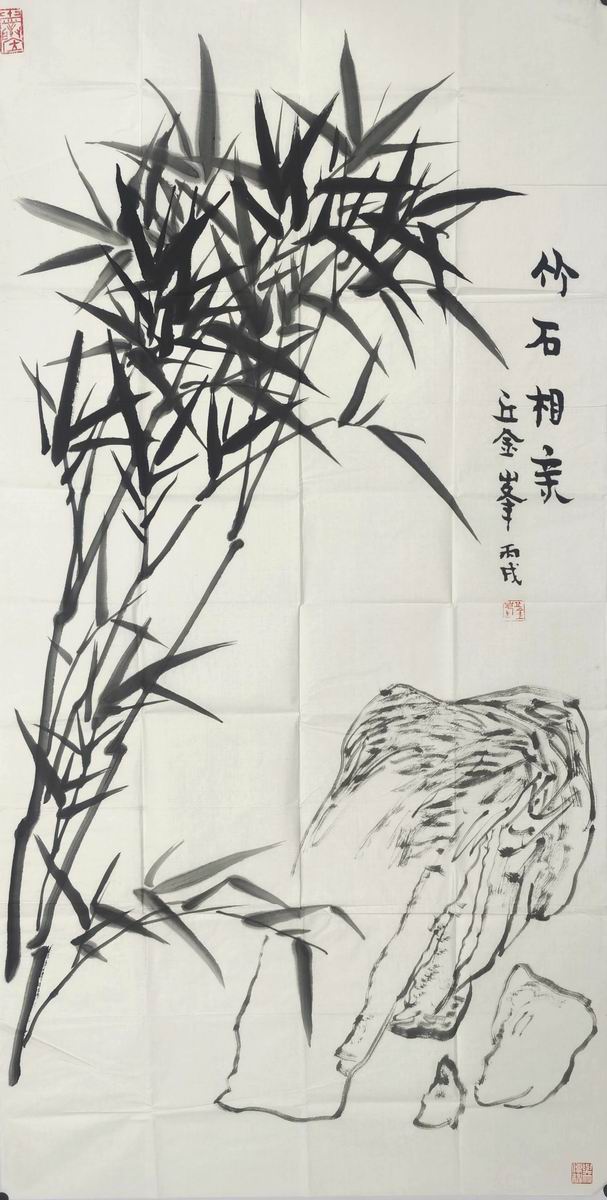 竹石相亲
丘金峯 丙戌